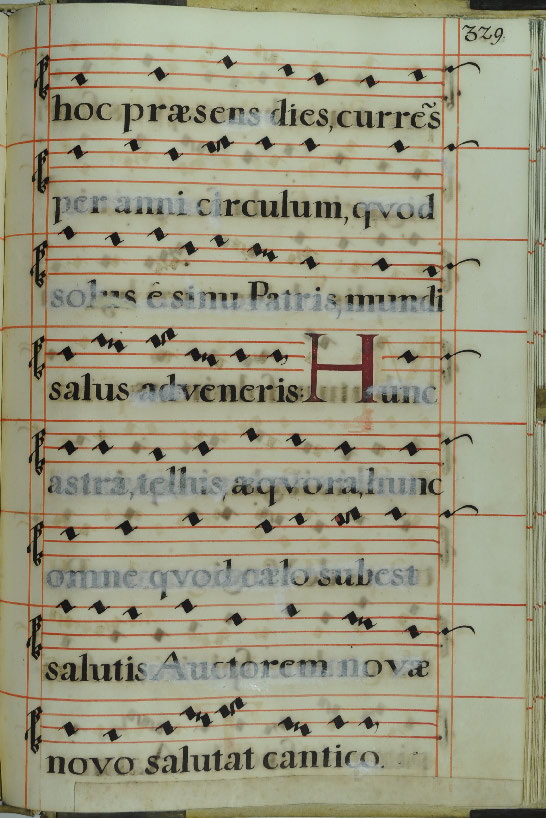 329.
hoc præsens dies, currẽs
per anni circulum, qvod
solus è sinu Patris, mundi
salus adveneris: Hunc
astra, tellus, æqvora, hunc
omne qvod cælo subest
salutis Auctorem novæ
novo salutat cantico.